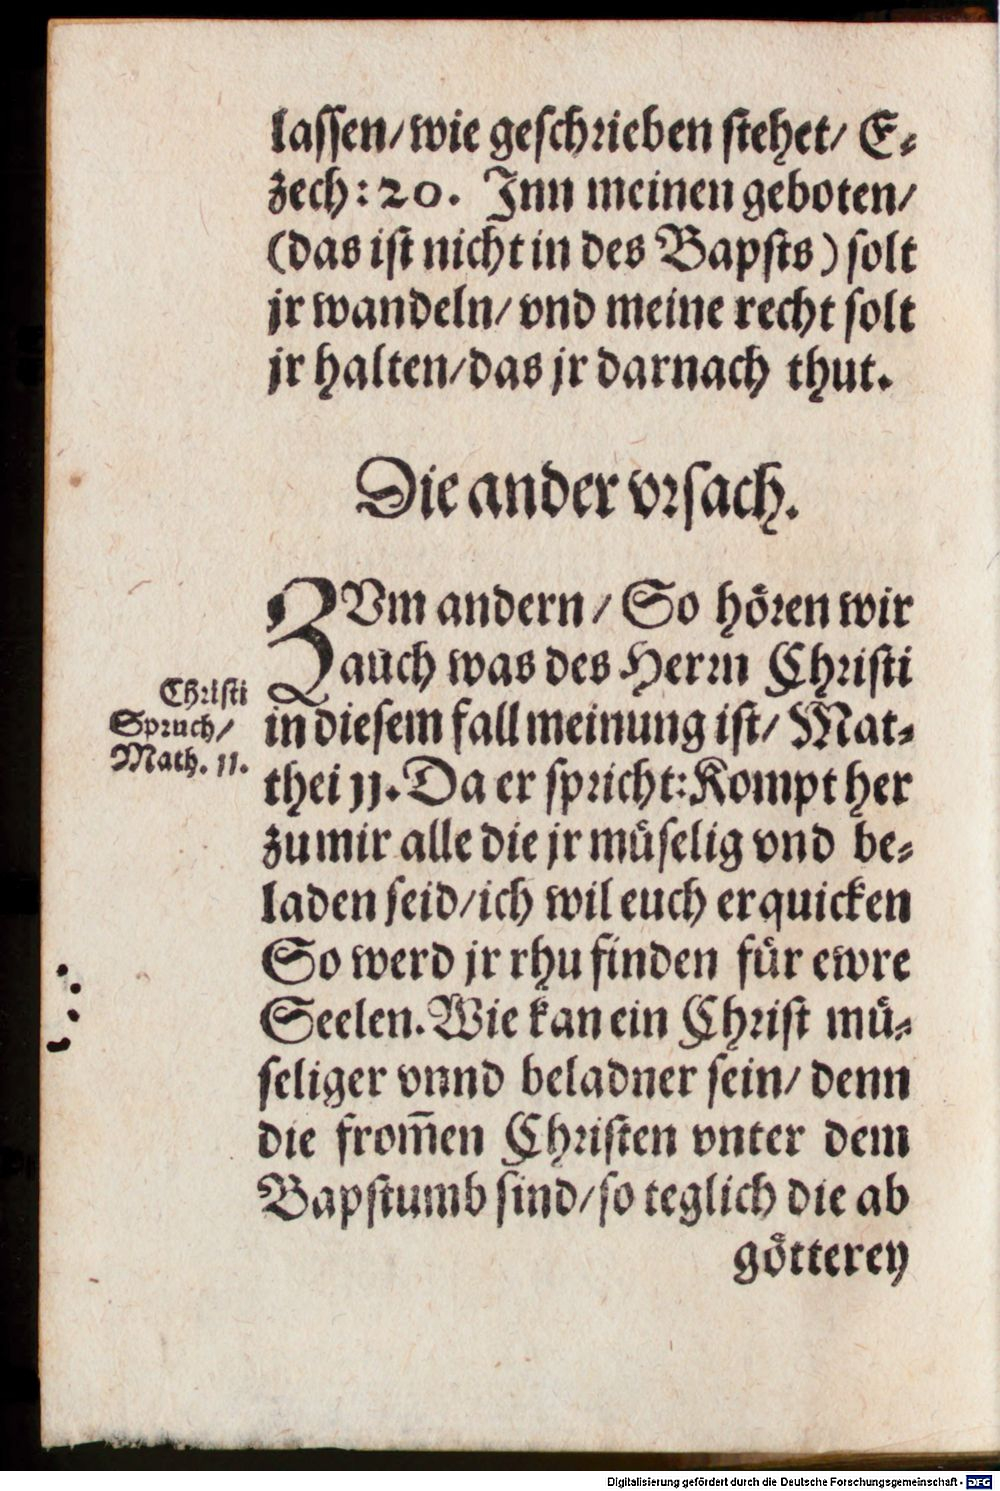 lassen/ wie geschrieben stehet/ E⸗
zech: 20. Jnn meinen geboten/
(das ist nicht in des Bapsts) solt
jr wandeln/ vnd meine recht solt
jr halten/ das jr darnach thut.
Die ander vrsach.
ZVm andern/ So hören wir
auch was des Herrn Christi
Christi
Spruch/
Math. 11.
in diesem fall meinung ist/ Mat⸗
thei 11. Da er spricht: Kompt her
zu mir alle die jr müselig vnd be⸗
laden seid/ ich wil euch erquicken
So werd jr rhu finden für ewre
Seelen. Wie kan ein Christ mü⸗
seliger vnnd beladner sein/ denn
die from̄en Christen vnter dem
Bapstumb sind/ so teglich die ab
götterey
Digitalisierung gefördert durch die Deutsche Forschungsgemeinschaft - DFG